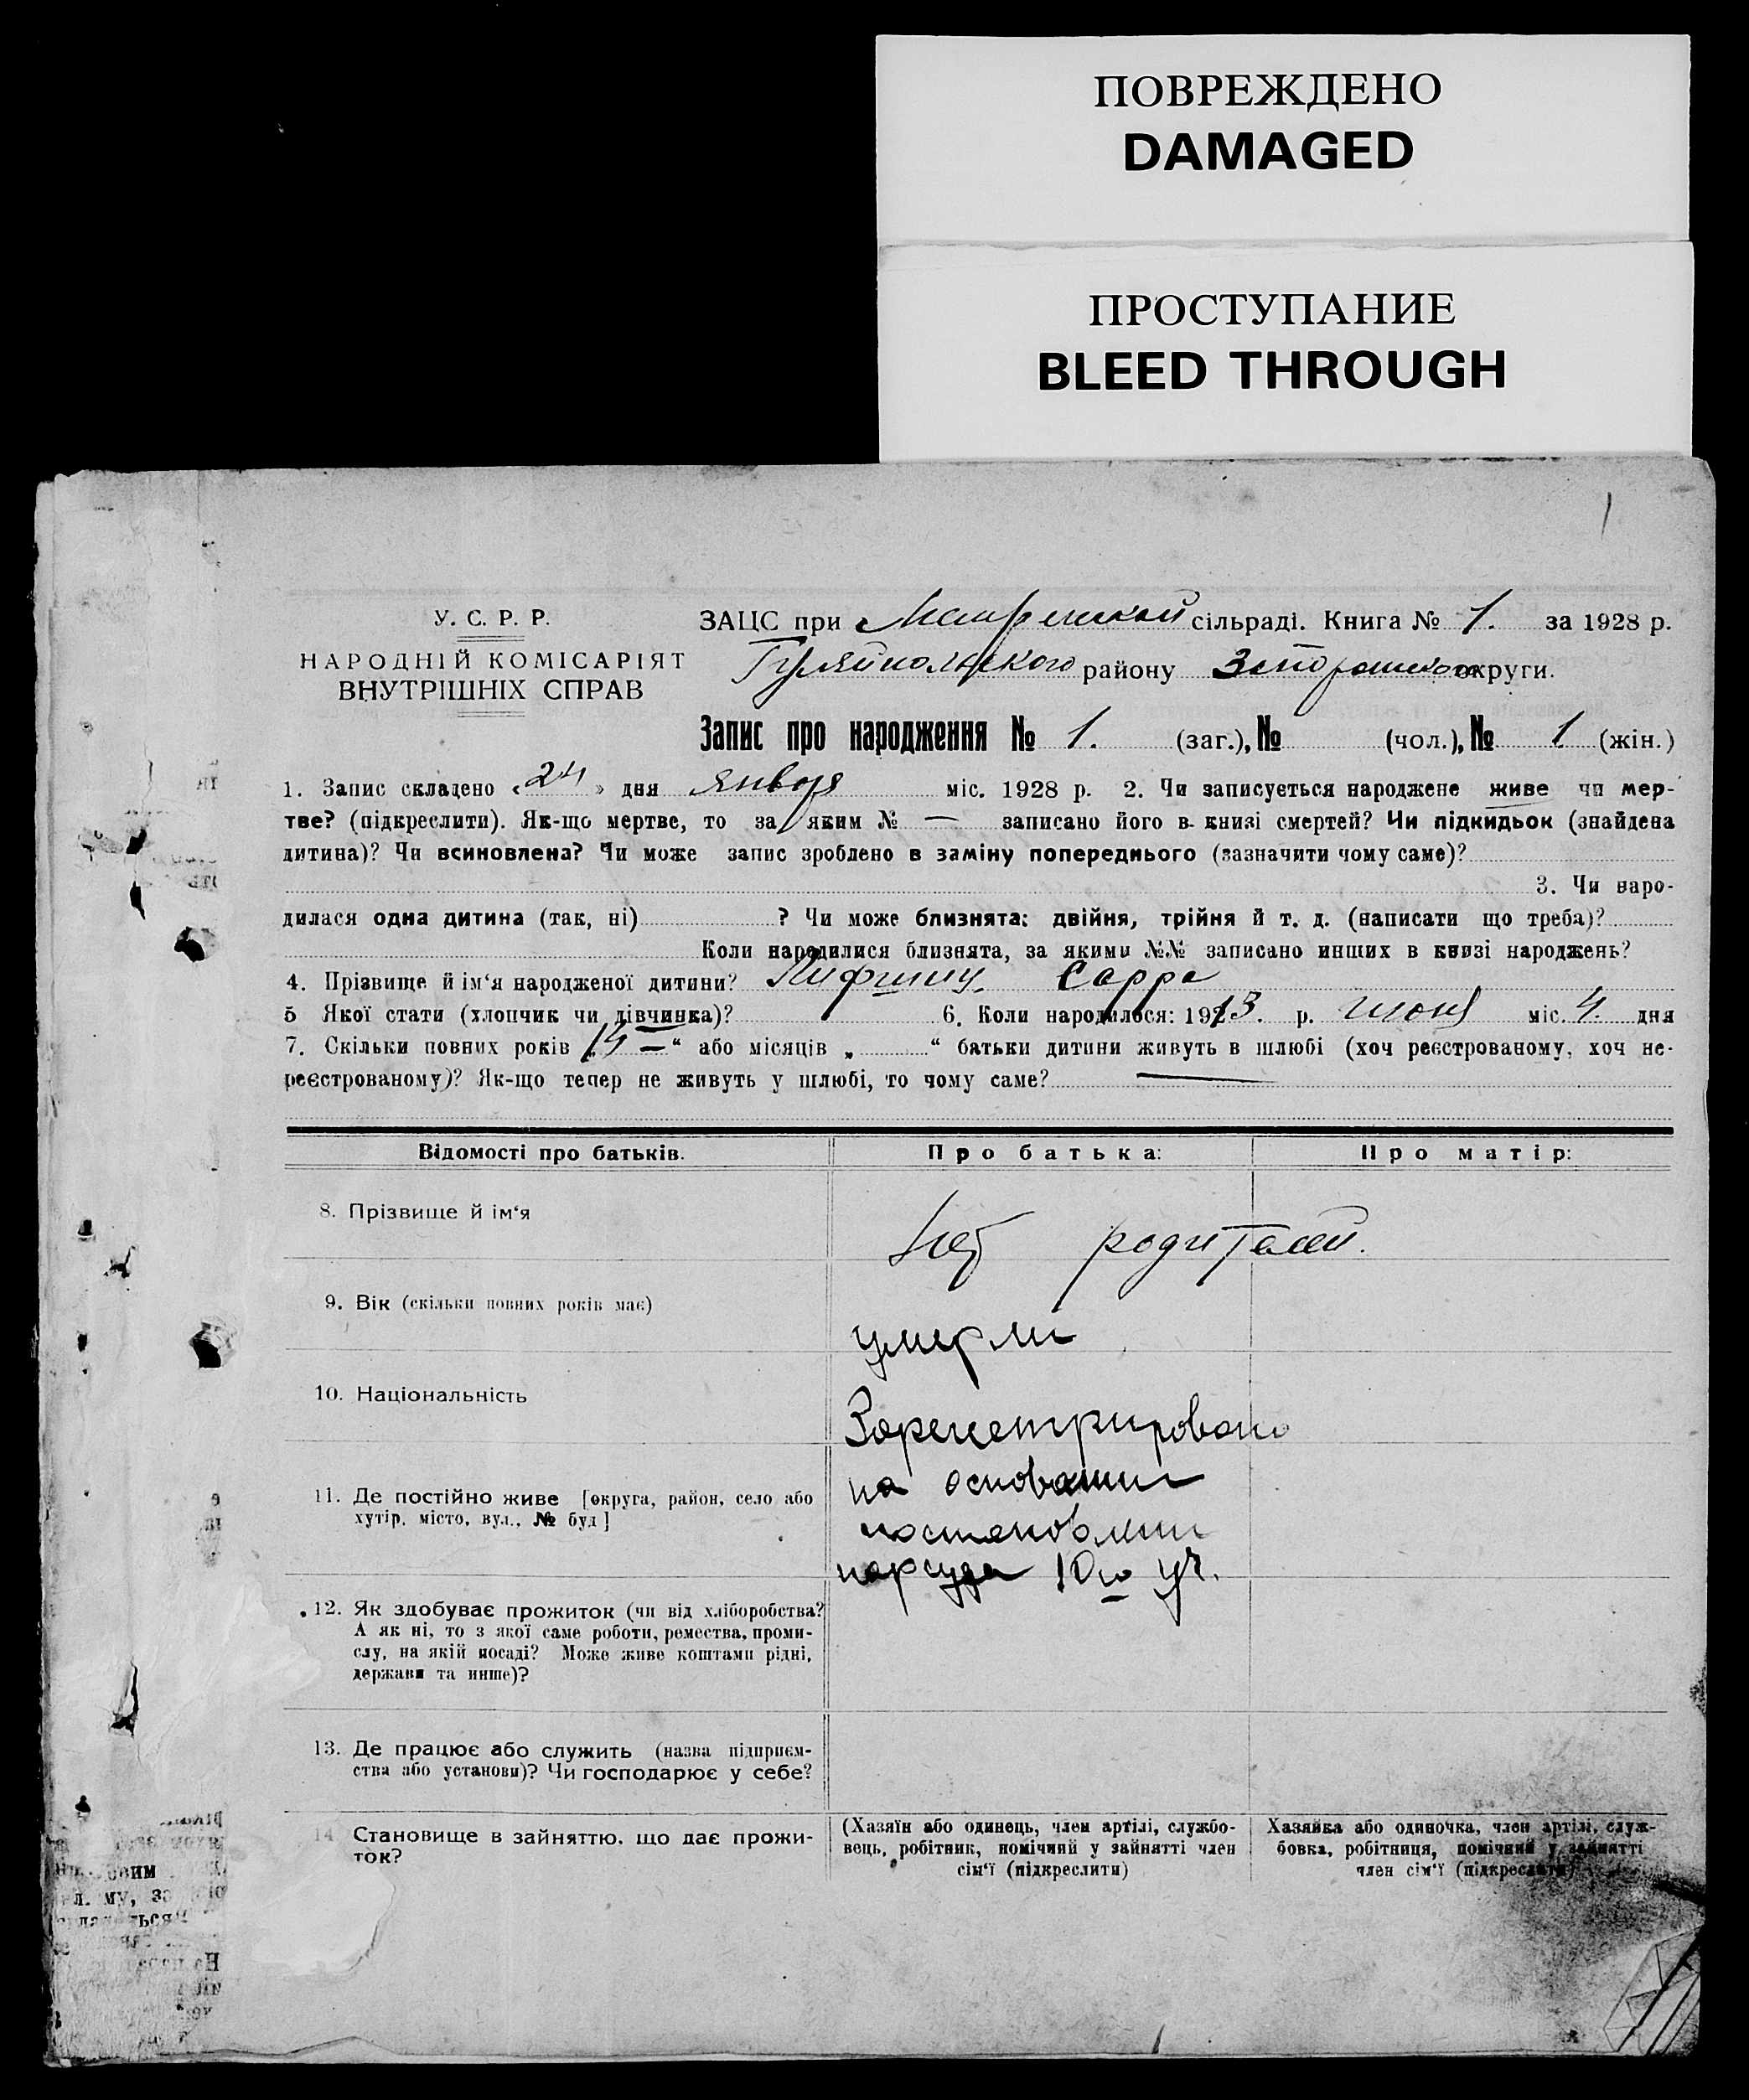 ПОВРЕЖДЕНО
DAMAGED
ПРОСТУПАНИЕ
BLEED THROUGH
У. С. Р. Р.
НАРОДНІЙ КОМІСАРІЯТ
ВНУТРІШНІХ СПРАВ
ЗАЦС при сільраді. Книга № 1. за 1928 р.
Гуляйпольского району Запорожского округи.
Запис про народження № 1. (заг.), № (чол.), № 1 (жін.)
1. Запис складено « 24 » дня января міс. 1928 р. 2. Чи записується народжене живе чи мер-
тве? (підкреслити). Як-що мертве, то за яким № — записано його в книзі смертей? Чи підкидьок (знайдена
дитина)? Чи всиновлена? Чи може запис зроблено в заміну попереднього (зазначити чому саме)?
3. Чи наро-
дилася одна дитина (так, ні) ? Чи може близнята: двійня, трійня й т. д. (написати що треба)?
Коли народилися близнята, за якими №№ записано инших в книзі народжень?
4. Прізвище й ім'я народженої дитини? Лифшиц. Сарра
5 Якої стати (хлопчик чи дівчинка)? 6. Коли народилося: 1913. р. июня міс. 4. дня
7. Скільки повних років „ 15 — “ або місяців „ “ батьки дитини живуть в шлюбі (хоч реєстрованому, хоч не-
реєстрованому)? Як-що тепер не живуть у шлюбі, то чому саме? —
Відомості про батьків. Про батька: Про матір:
8. Прізвище й ім'я нет родителей.
9. Вік (скільки повних років має) умерли
10. Національність Зарегистрировано
11. Де постійно живе [округа, район, село або на основании
хутір, місто, вул., № буд] постановлении
нарсуда 10го уч.
12. Як здобуває прожиток (чи від хліборобства?
А як ні, то з якої саме роботи, ремества, проми-
слу, на якій посаді? Може живе коштами рідні,
держави та инше)?
13. Де працює або служить (назва підприєм-
ства або установи)? Чи господарює у себе?
14 Становище в зайняттю, що дає прожи-
ток?
(Хазяїн або одинець, член артілі, службо-
вець, робітник, помічний у зайнятті член
сім'ї (підкреслити)
Хазяйка або одиночка, член артілі, служ-
бовка, робітниця, помічний у зайнятті
член сім'ї (підкреслити)